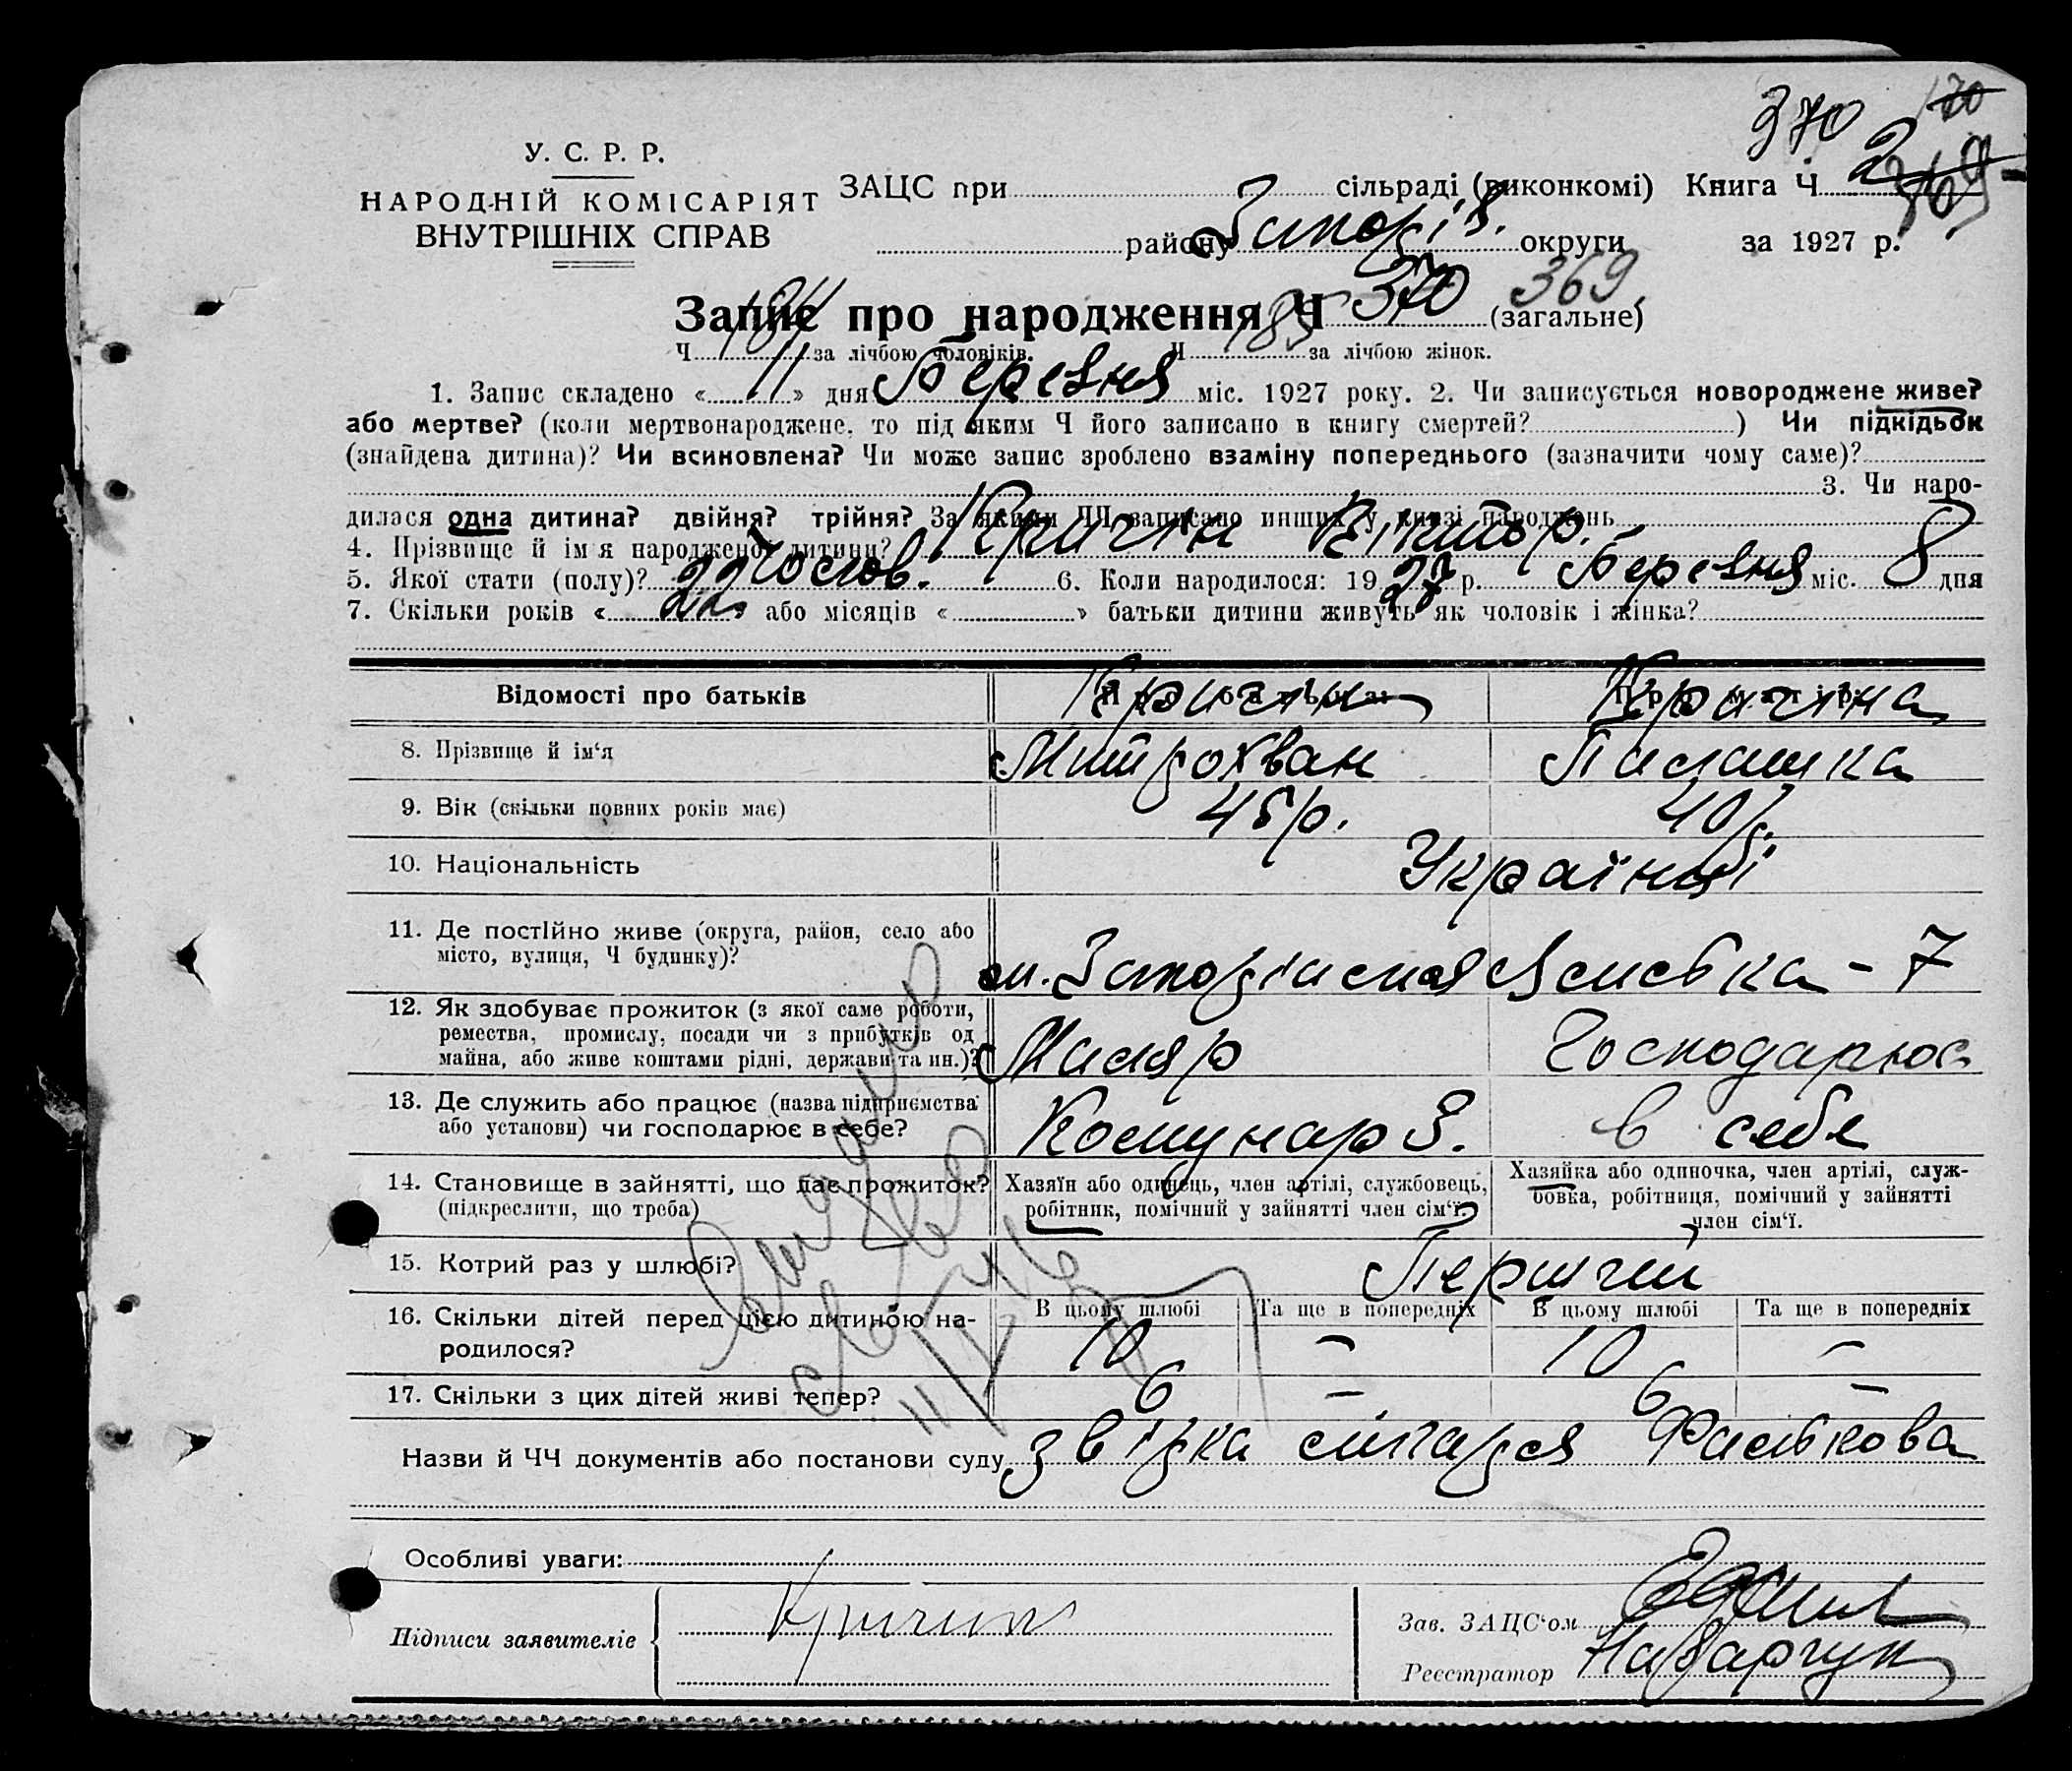 370
У. С. Р. Р.
НАРОДНІЙ КОМІСАРІЯТ
ВНУТРІШНІХ СПРАВ
ЗАЦС при сільраді (виконкомі) Книга Ч 2
району Запоріз. округи за 1927 р.
Запис про народження Ч 370 369 (загальне)
Ч 184 за лічбою чоловіків. Ч 185 за лічбою жінок.
1. Запис складено « 11 » дня Березня міс. 1927 року. 2. Чи записується новороджене живе?
або мертве? (коли мертвонароджене, то під яким Ч його записано в книгу смертей? ) Чи підкідьок
(знайдена дитина)? Чи всиновлена? Чи може запис зроблено взаміну попереднього (зазначити чому саме)?
3. Чи наро-
дилася одна дитина? двійня? трійня? За якими ЧЧ записано инших у книзі народжень
4. Прізвище й ім'я народженої дитини? Кричун Віктор.
5. Якої стати (полу)? Чолов. 6. Коли народилося: 1927 р. Березня міс. 8 дня
7. Скільки років « 22 » або місяців « » батьки дитини живуть як чоловік і жінка?
Відомості про батьків
8. Прізвище й ім'я Митрохван Палашка
9. Вік (скільки повних років має) 45 р. 40 р.
10. Національність Українці
11. Де постійно живе (округа, район, село або
місто, вулиця, Ч будинку)?
м. - 7
12. Як здобуває прожиток (з якої саме роботи,
ремества, промислу, посади чи з прибутків од
майна, або живе коштами рідні, держави та ин.)?
Маляр Господарює
13. Де служить або працює (назва підприємства
або установи) чи господарює в себе?
Комунар З. в себе
14. Становище в зайнятті, що дає прожиток?
(підкреслити, що треба)
Хазяїн або одинець, член артілі, службовець,
робітник, помічний у зайнятті член сім'ї?
Хазяйка або одиночка, член артілі, служ-
бовка, робітниця, помічний у зайнятті
член сім'ї.
15. Котрий раз у шлюбі? Перший
16. Скільки дітей перед цією дитиною на-
родилося?
В цьому шлюбі Та ще в попередніх В цьому шлюбі Та ще в попередніх
10 – 10 –
17. Скільки з цих дітей живі тепер? 6 – 6 –
Назви й ЧЧ документів або постанови суду звізка лікаря
Особливі уваги:
Підписи заявителів Кричун
Зав. ЗАЦС'ом
Реєстратор Назарчук